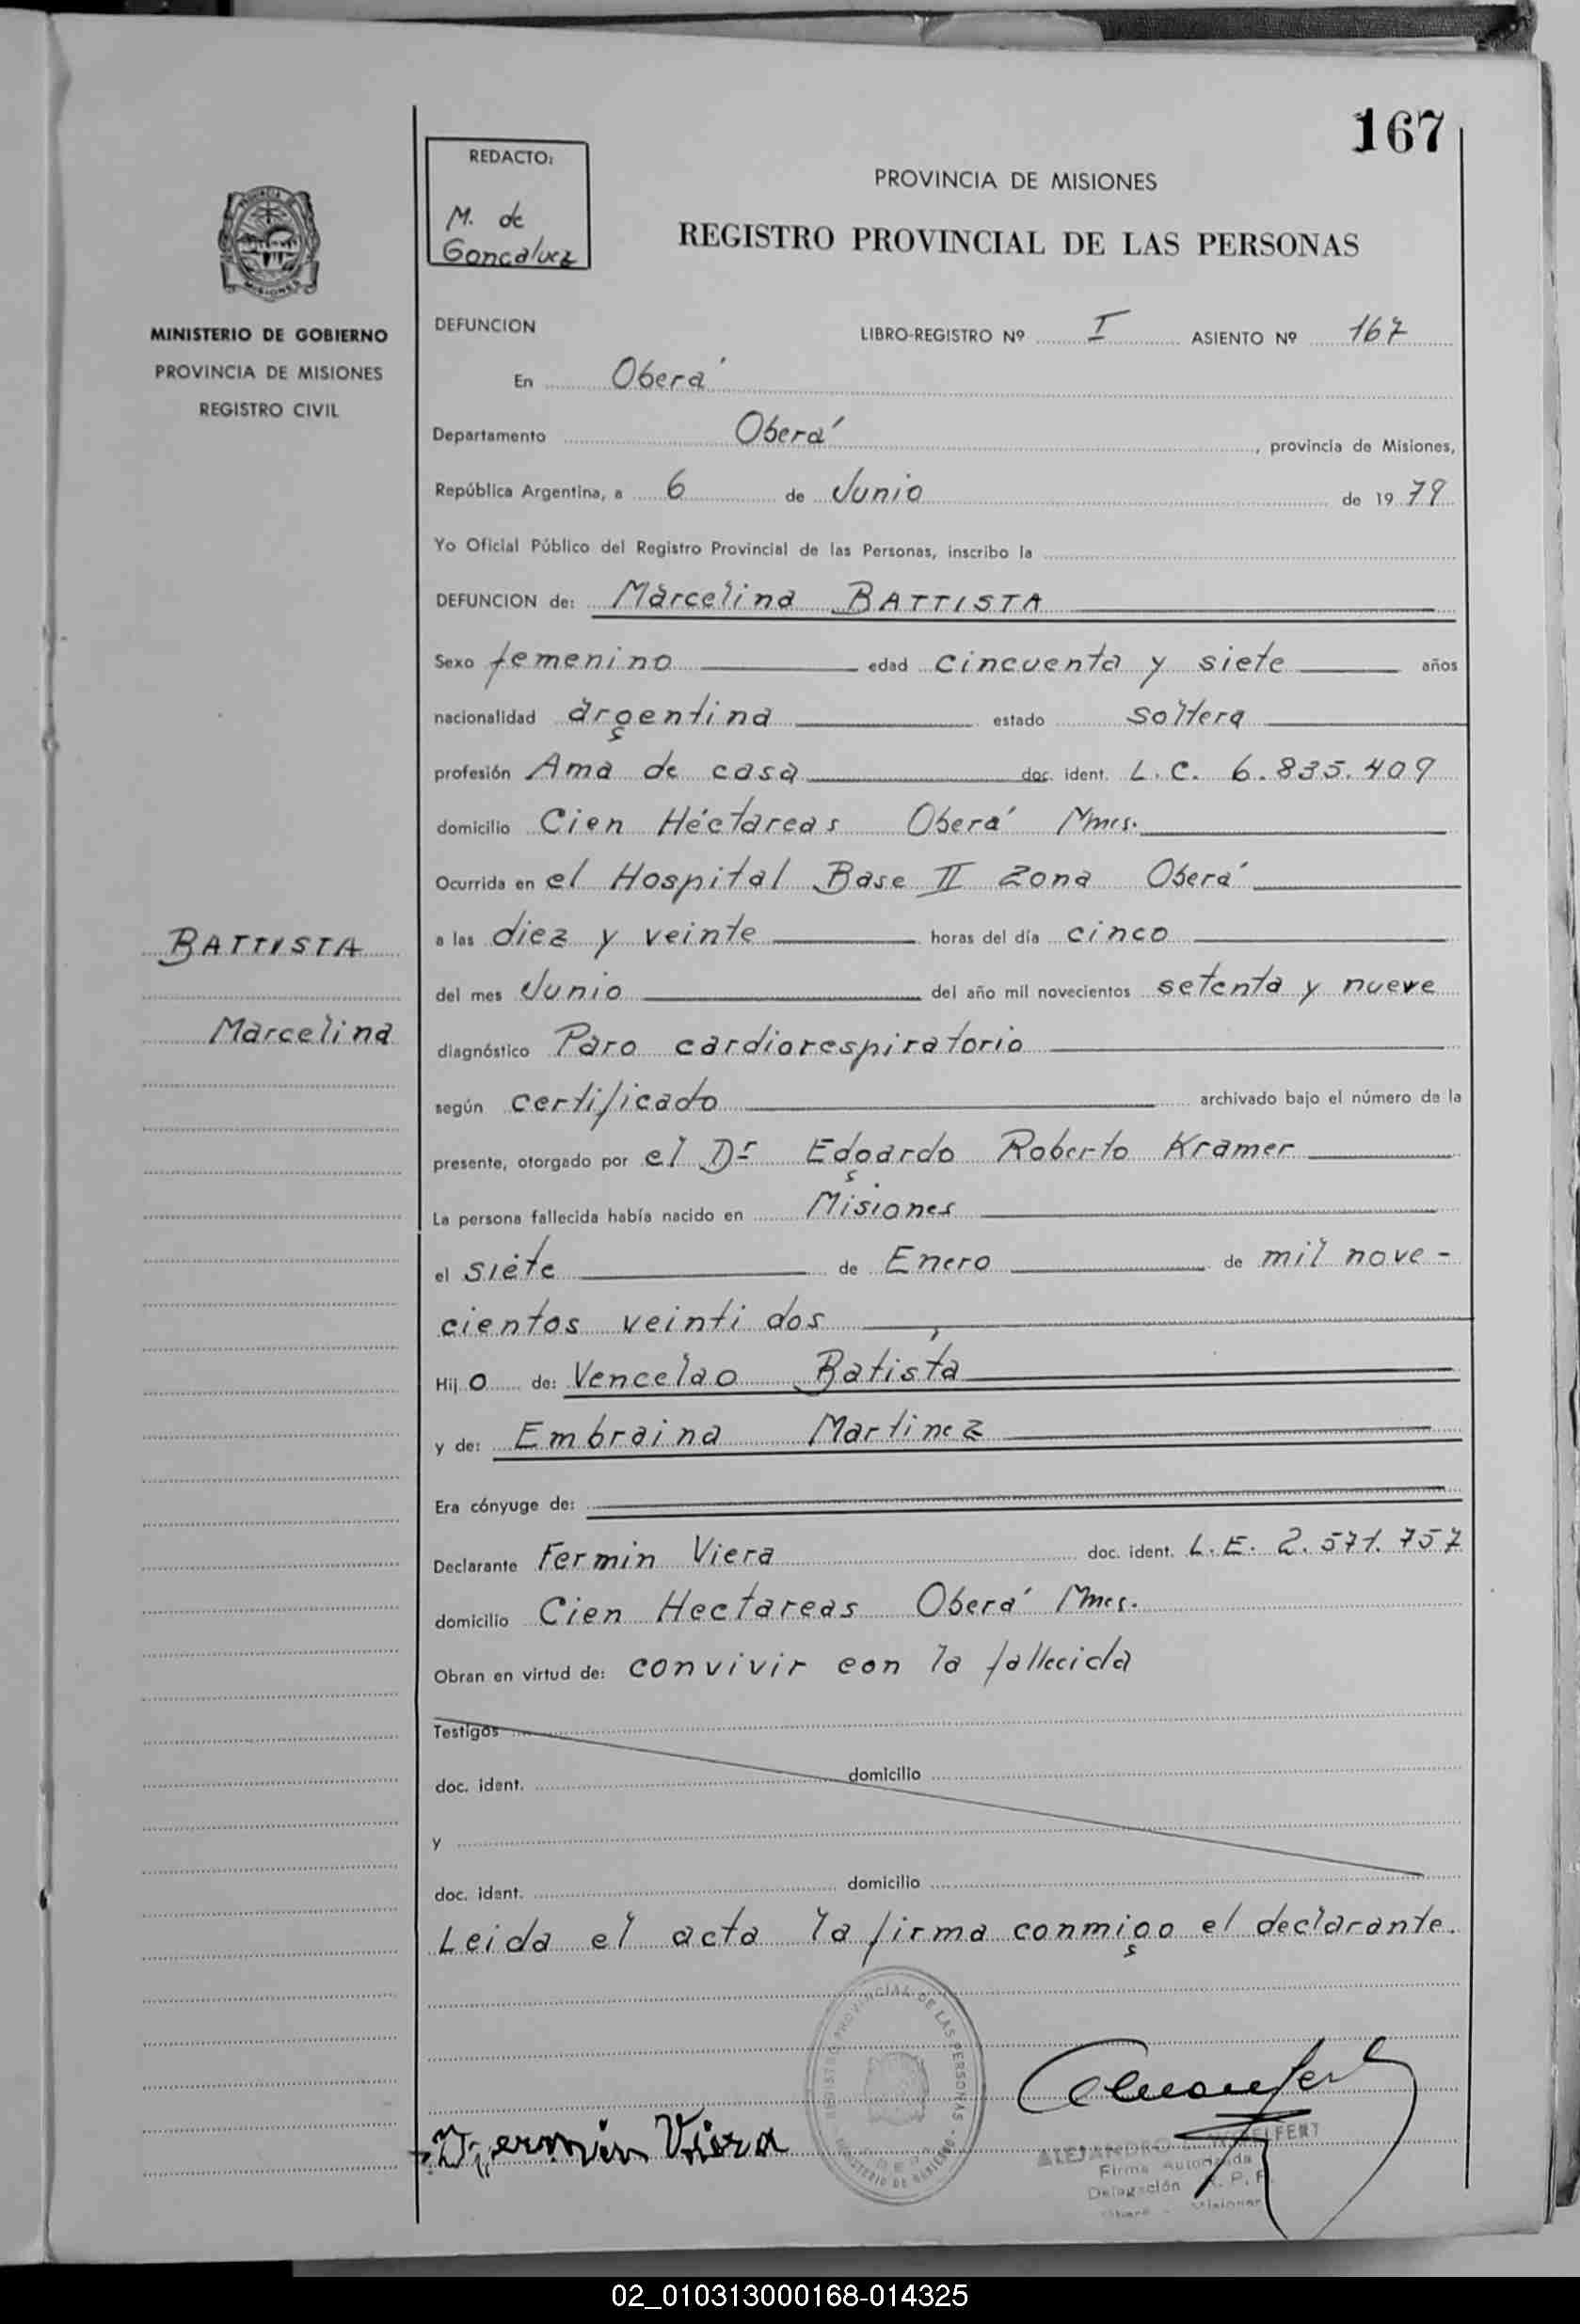 167
REDACTO:
M. de
Goncalvez
PROVINCIA DE MISIONES
REGISTRO PROVINCIAL DE LAS PERSONAS
MISIONES
MINISTERIO DE GOBIERNO
PROVINCIA DE MISIONES
REGISTRO CIVIL
DEFUNCION
LIBRO-REGISTRO Nº I ASIENTO Nº 167
En Oberá
Departamento Oberá, provincia de Misiones,
República Argentina, a 6 de Junio de 1979
Yo Oficial Público del Registro Provincial de las Personas, inscribo la
DEFUNCION de: Marcelina BATTISTA
Sexo femenino edad cincuenta y siete años
nacionalidad argentina estado soltera
profesión Ama de casa doc. ident. L.C. 6.835.409
domicilio Cien Héctareas Oberá Mnes.
Ocurrida en el Hospital Base II Zona Oberá
BATTISTA
Marcelina
a las diez y veinte horas del día cinco
del mes Junio del año mil novecientos setenta y nueve
diagnóstico Paro cardiorespiratorio
según certificado archivado bajo el número de la
presente, otorgado por el Dr Edgardo Roberto Kramer
La persona fallecida había nacido en Misiones
el siete de Enero de mil nove-
cientos veinti dos
Hijo de: Vencelao Batista
y de: Embraina Martinez
Era cónyuge de:
Declarante Fermin Viera doc. ident. L.E. 2.571.757
domicilio Cien Hectareas Oberá Mnes.
Obran en virtud de: convivir con la fallecida
Testigos
doc. ident. domicilio
y
doc. ident. domicilio
Leida el acta la firma conmigo el declarante.
REGISTRO PROVINCIAL DE LAS PERSONAS
MINISTERIO DE GOBIERNO
Fermin Viera
ALEJANDRO
Firma Autorizada
Delegación R. P. P.
Oberá - Misiones
02_010313000168-014325